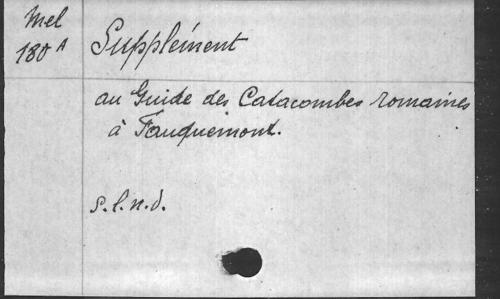 Mel
180 A
Supplément
au Guide des Catacombes romaines
à Fauquemont.
s.l.n.d.